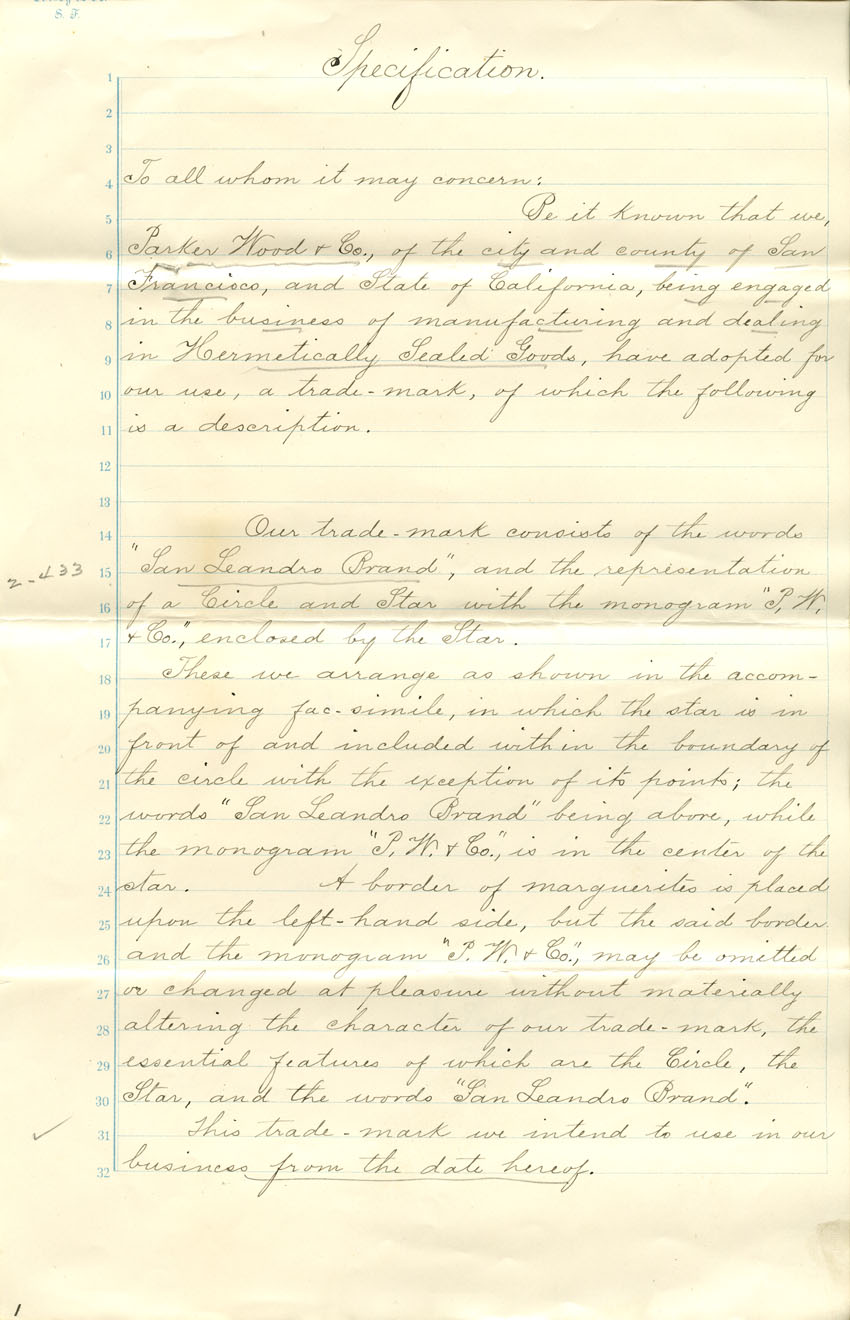 S. F.
Specification.
1
2
3
4 To all whom it may concern:
5 Be it known that we,
6 Parker Wood & Co., of the city and county of San
7 Francisco, and State of California, being engaged
8 in the business of manufacturing and dealing
9 in Hermetically Sealed Goods, have adopted for
10 our use, a trade-mark, of which the following
11 is a description.
12
13
14 Our trade-mark consists of the words
2-433 15 "San Leandro Brand", and the representation
16 of a Circle and Star with the monogram "P. W.
17 & Co.", enclosed by the Star.
18 These we arrange as shown in the accom-
19 panying fac-simile, in which the star is in
20 front of and included within the boundary of
21 the circle with the exception of its points; the
22 words "San Leandro Brand" being above, while
23 the monogram "P. W. & Co.", is in the center of the
24 star. A border of marguerites is placed
25 upon the left-hand side, but the said border
26 and the monogram "P. W. & Co.", may be omitted
27 or changed at pleasure without materially
28 altering the character of our trade-mark, the
29 essential features of which are the Circle, the
30 Star, and the words "San Leandro Brand".
31 This trade-mark we intend to use in our
32 business from the date hereof.
1